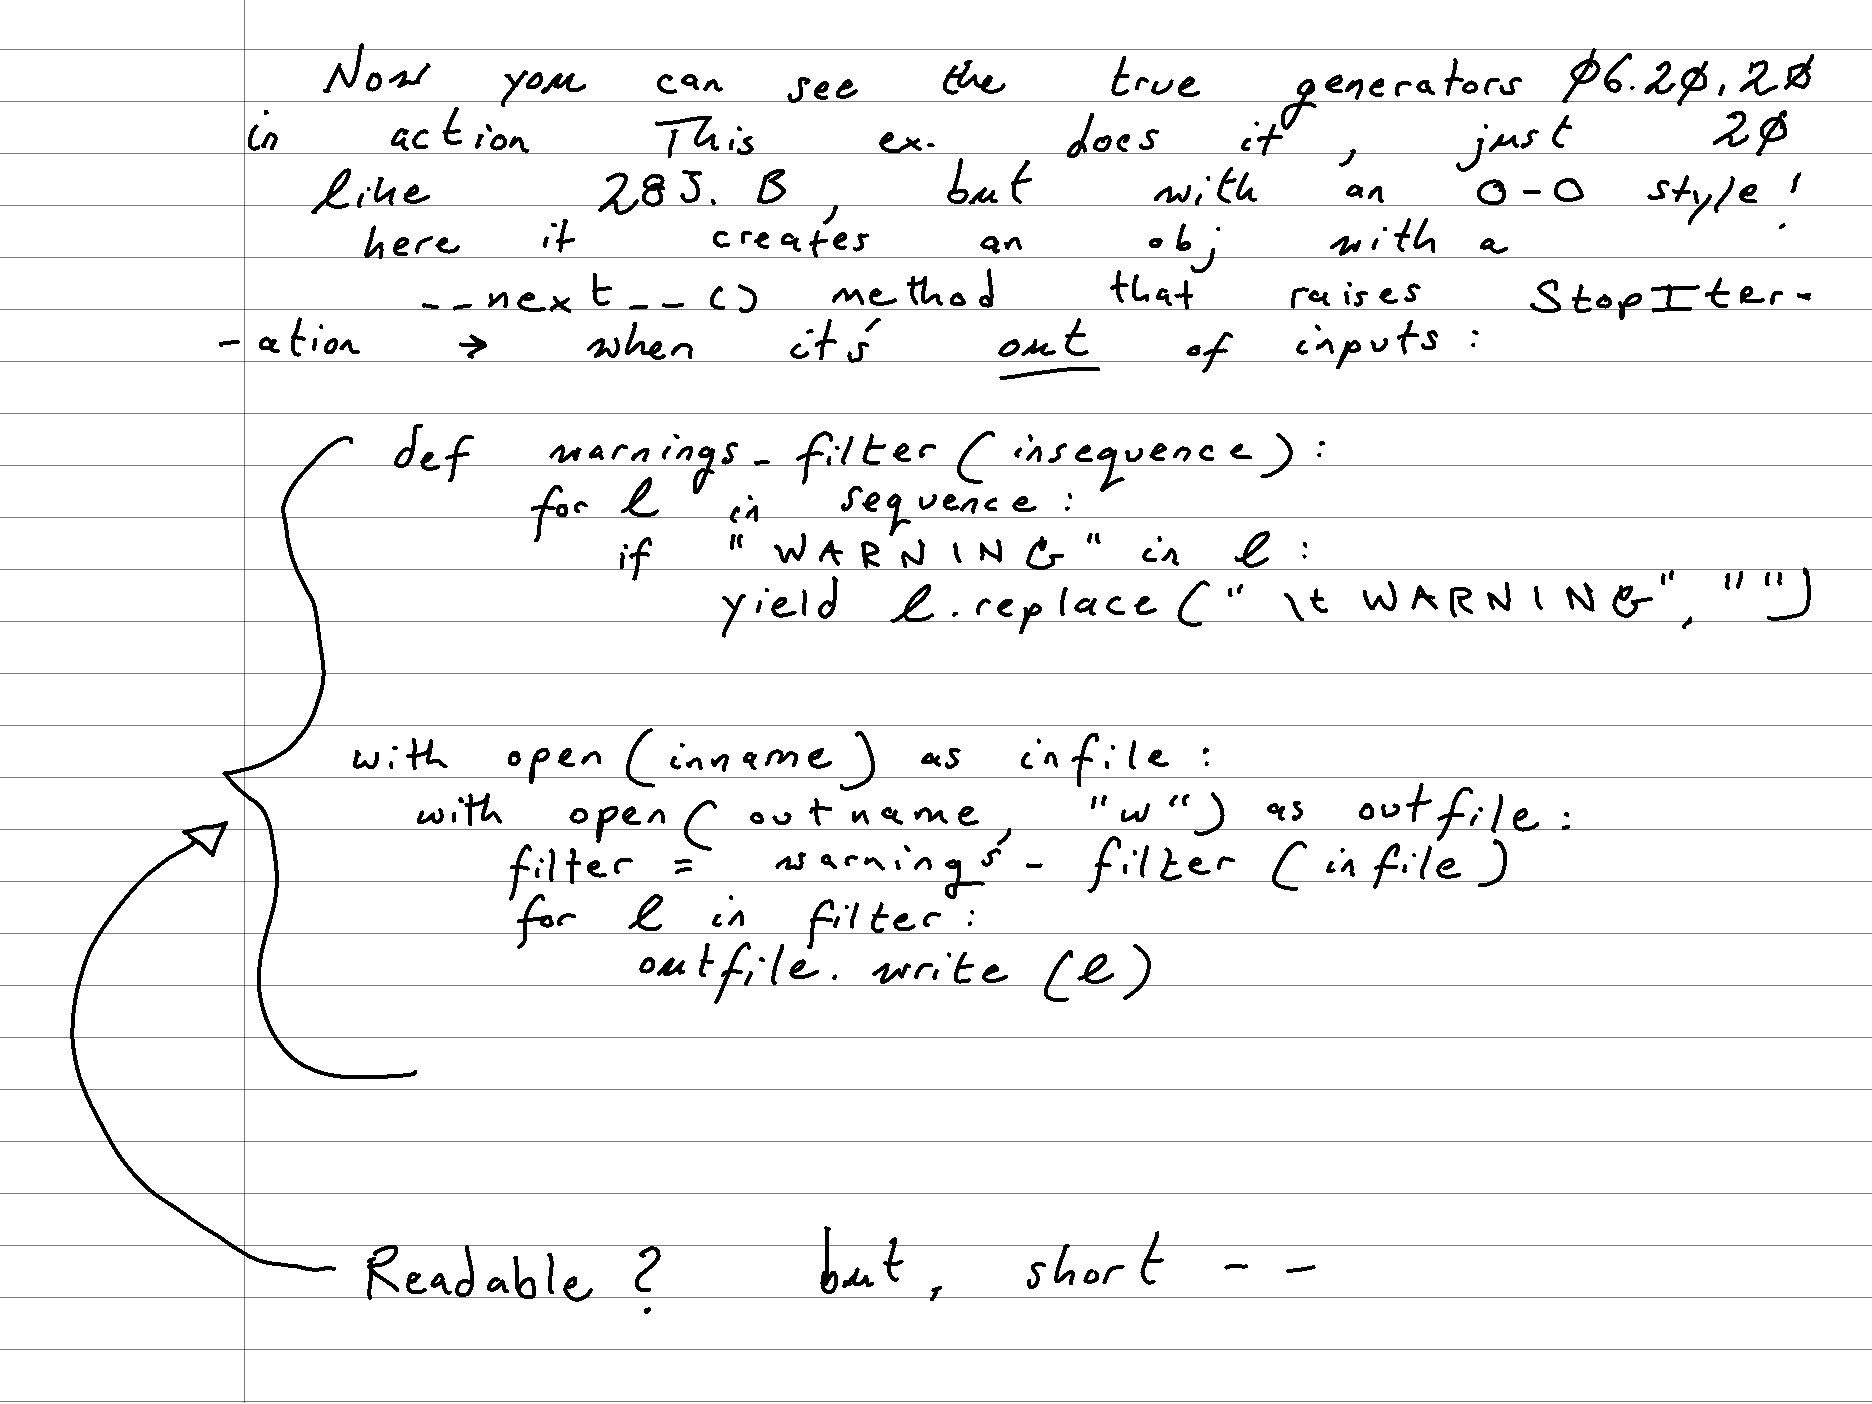 Now you can see the true generators 06.20.20
in action This ex. does it, just 20
like 285. B, but with an O-O style!
here it creates an obj with a
__next__() method that raises StopIter-
-ation → when it's out of inputs:
def warnings_filter(insequence):
for l in sequence:
if "WARNING" in l:
yield l.replace("\tWARNING", "")
with open(inname) as infile:
with open(outname, "w") as outfile:
filter = warnings_filter(infile)
for l in filter:
outfile.write(l)
Readable? but, short --